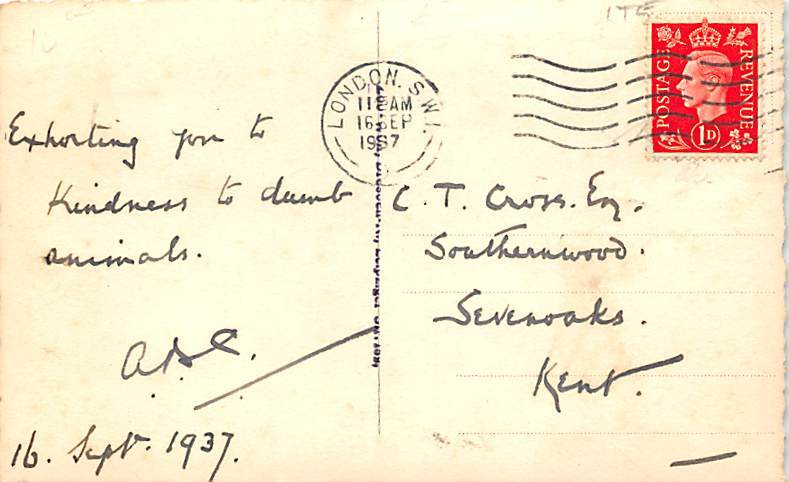 Exhorting you to
Kindness to dumb
animals.
16. Sept. 1937.
LONDON. S.W.1.
11 AM
16 SEP
1937
POSTAGE
REVENUE
1D
C. T. Cross. Esq.
Southernwood.
Sevenoaks.
Kent.